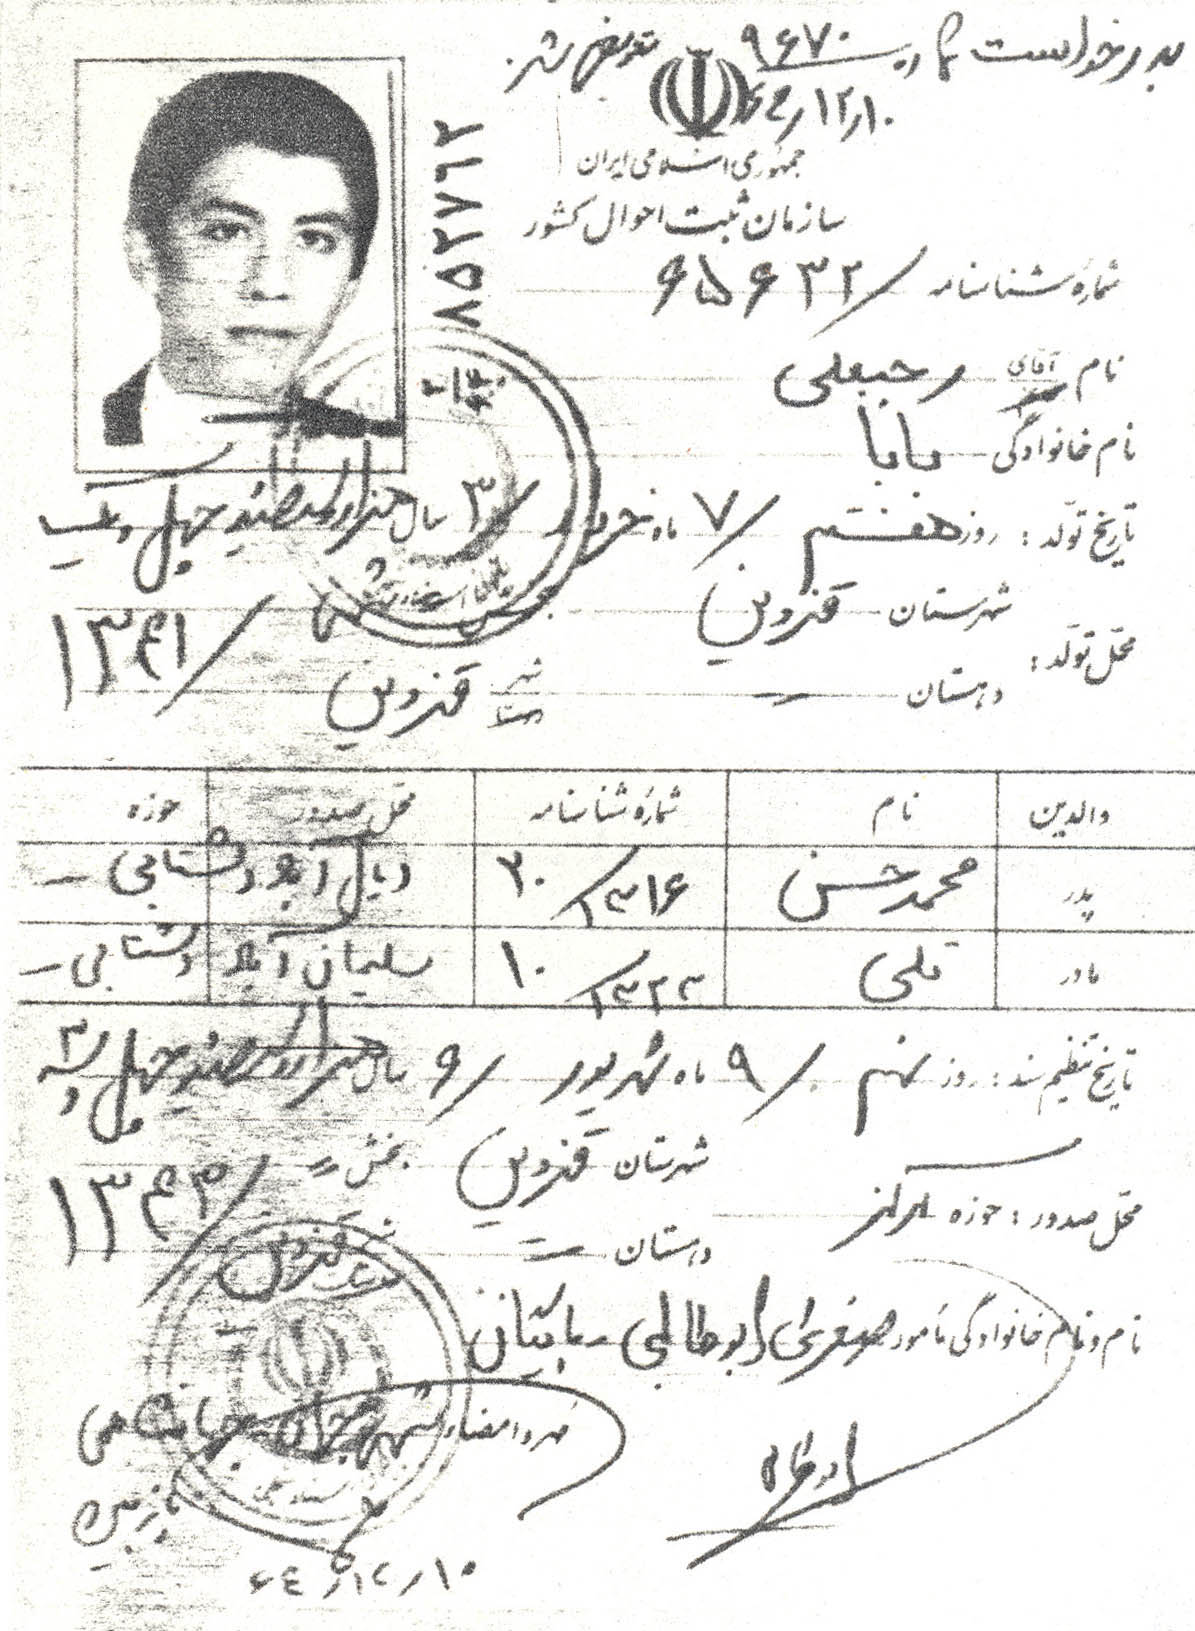 بدرخواست شماره ۹۶۷۰ تعویض شد
۶۴/۱۲/۱۰
جمهوری اسلامی ایران
سازمان ثبت احوال کشور
۸۵۲۷۶۲
شماره شناسنامه ۶۵۶۳۲
نام آقای رجبعلی
نام خانوادگی بابا
تاریخ تولد: روز هفتم /۷ ماه خرداد /۳ سال هزار و سیصد و چهل و یک
۱۳۴۱/
محل تولد: شهرستان قزوین بخش
دهستان — شهر قزوین
والدین نام شماره شناسنامه محل صدور حوزه
پدر محمدحسن ۲۰/۱۳۱۶ آباد دشتابی –
مادر ۱۰ سلیمان آباد دشتابی –
تاریخ تنظیم سند: روز نهم /۹ ماه شهریور /۶ سال هزار و سیصد و چهل و سه
۱۳۴۳/
محل صدور: حوزه مرکز شهرستان قزوین بخش
دهستان شهر قزوین
نام و نام خانوادگی مامور ابوطالبی
مهر و امضاء
۶۴/۱۲/۱۰